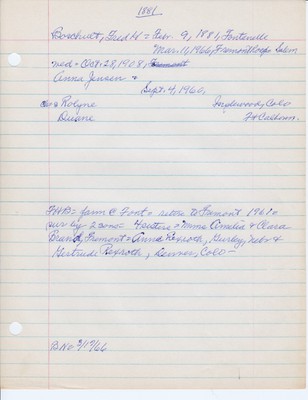 1881
Borchert, Fred W = Febr. 9, 1881, Fontenelle
Mar. 11, 1966, Fremont Hosp Salem
med = Oct. 28, 1908,
Anna Jensen +
Sept. 4, 1960,
Robyne Inglewood, Colo
Duane Ft Calhoun.
FHB = farm @ Font = retire to Fremont 1961 =
sur by 2 sons = 4 sisters = Mmes Amelia & Clara
Brandt, Fremont = Anna Rexroth, Gurley, Nebr &
Gertrude Rexroth, Denver, Colo =
B. No 3/17/66